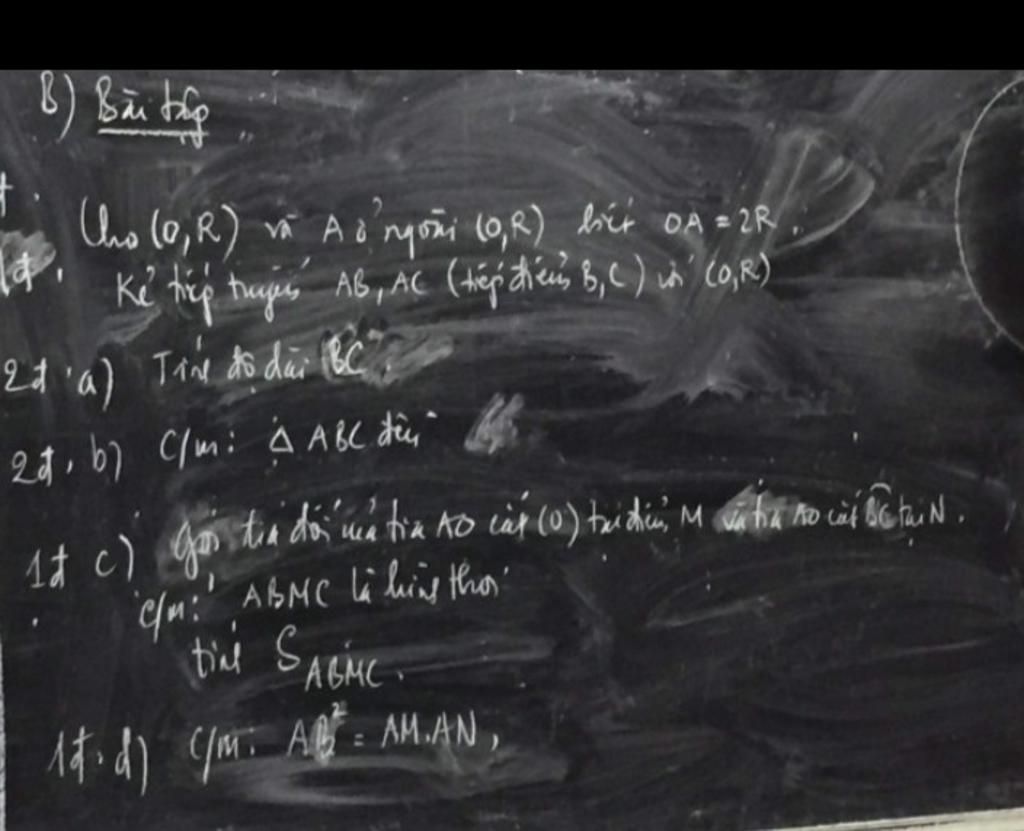 B) Bài tập
1.
Cho (O,R) và A ở ngoài (O,R) biết OA = 2R.
1đ. Kẻ tiếp tuyến AB, AC (tiếp điểm B,C) với (O,R)
2đ a) Tính độ dài BC.
2đ. b) C/m: Δ ABC đều
1đ c) Gọi tia đối của tia AO cắt (O) tại điểm M và tia AO cắt BC tại N.
C/m: ABMC là hình thoi
tính S_ABMC.
1đ. d) C/m: AB² = AM.AN,